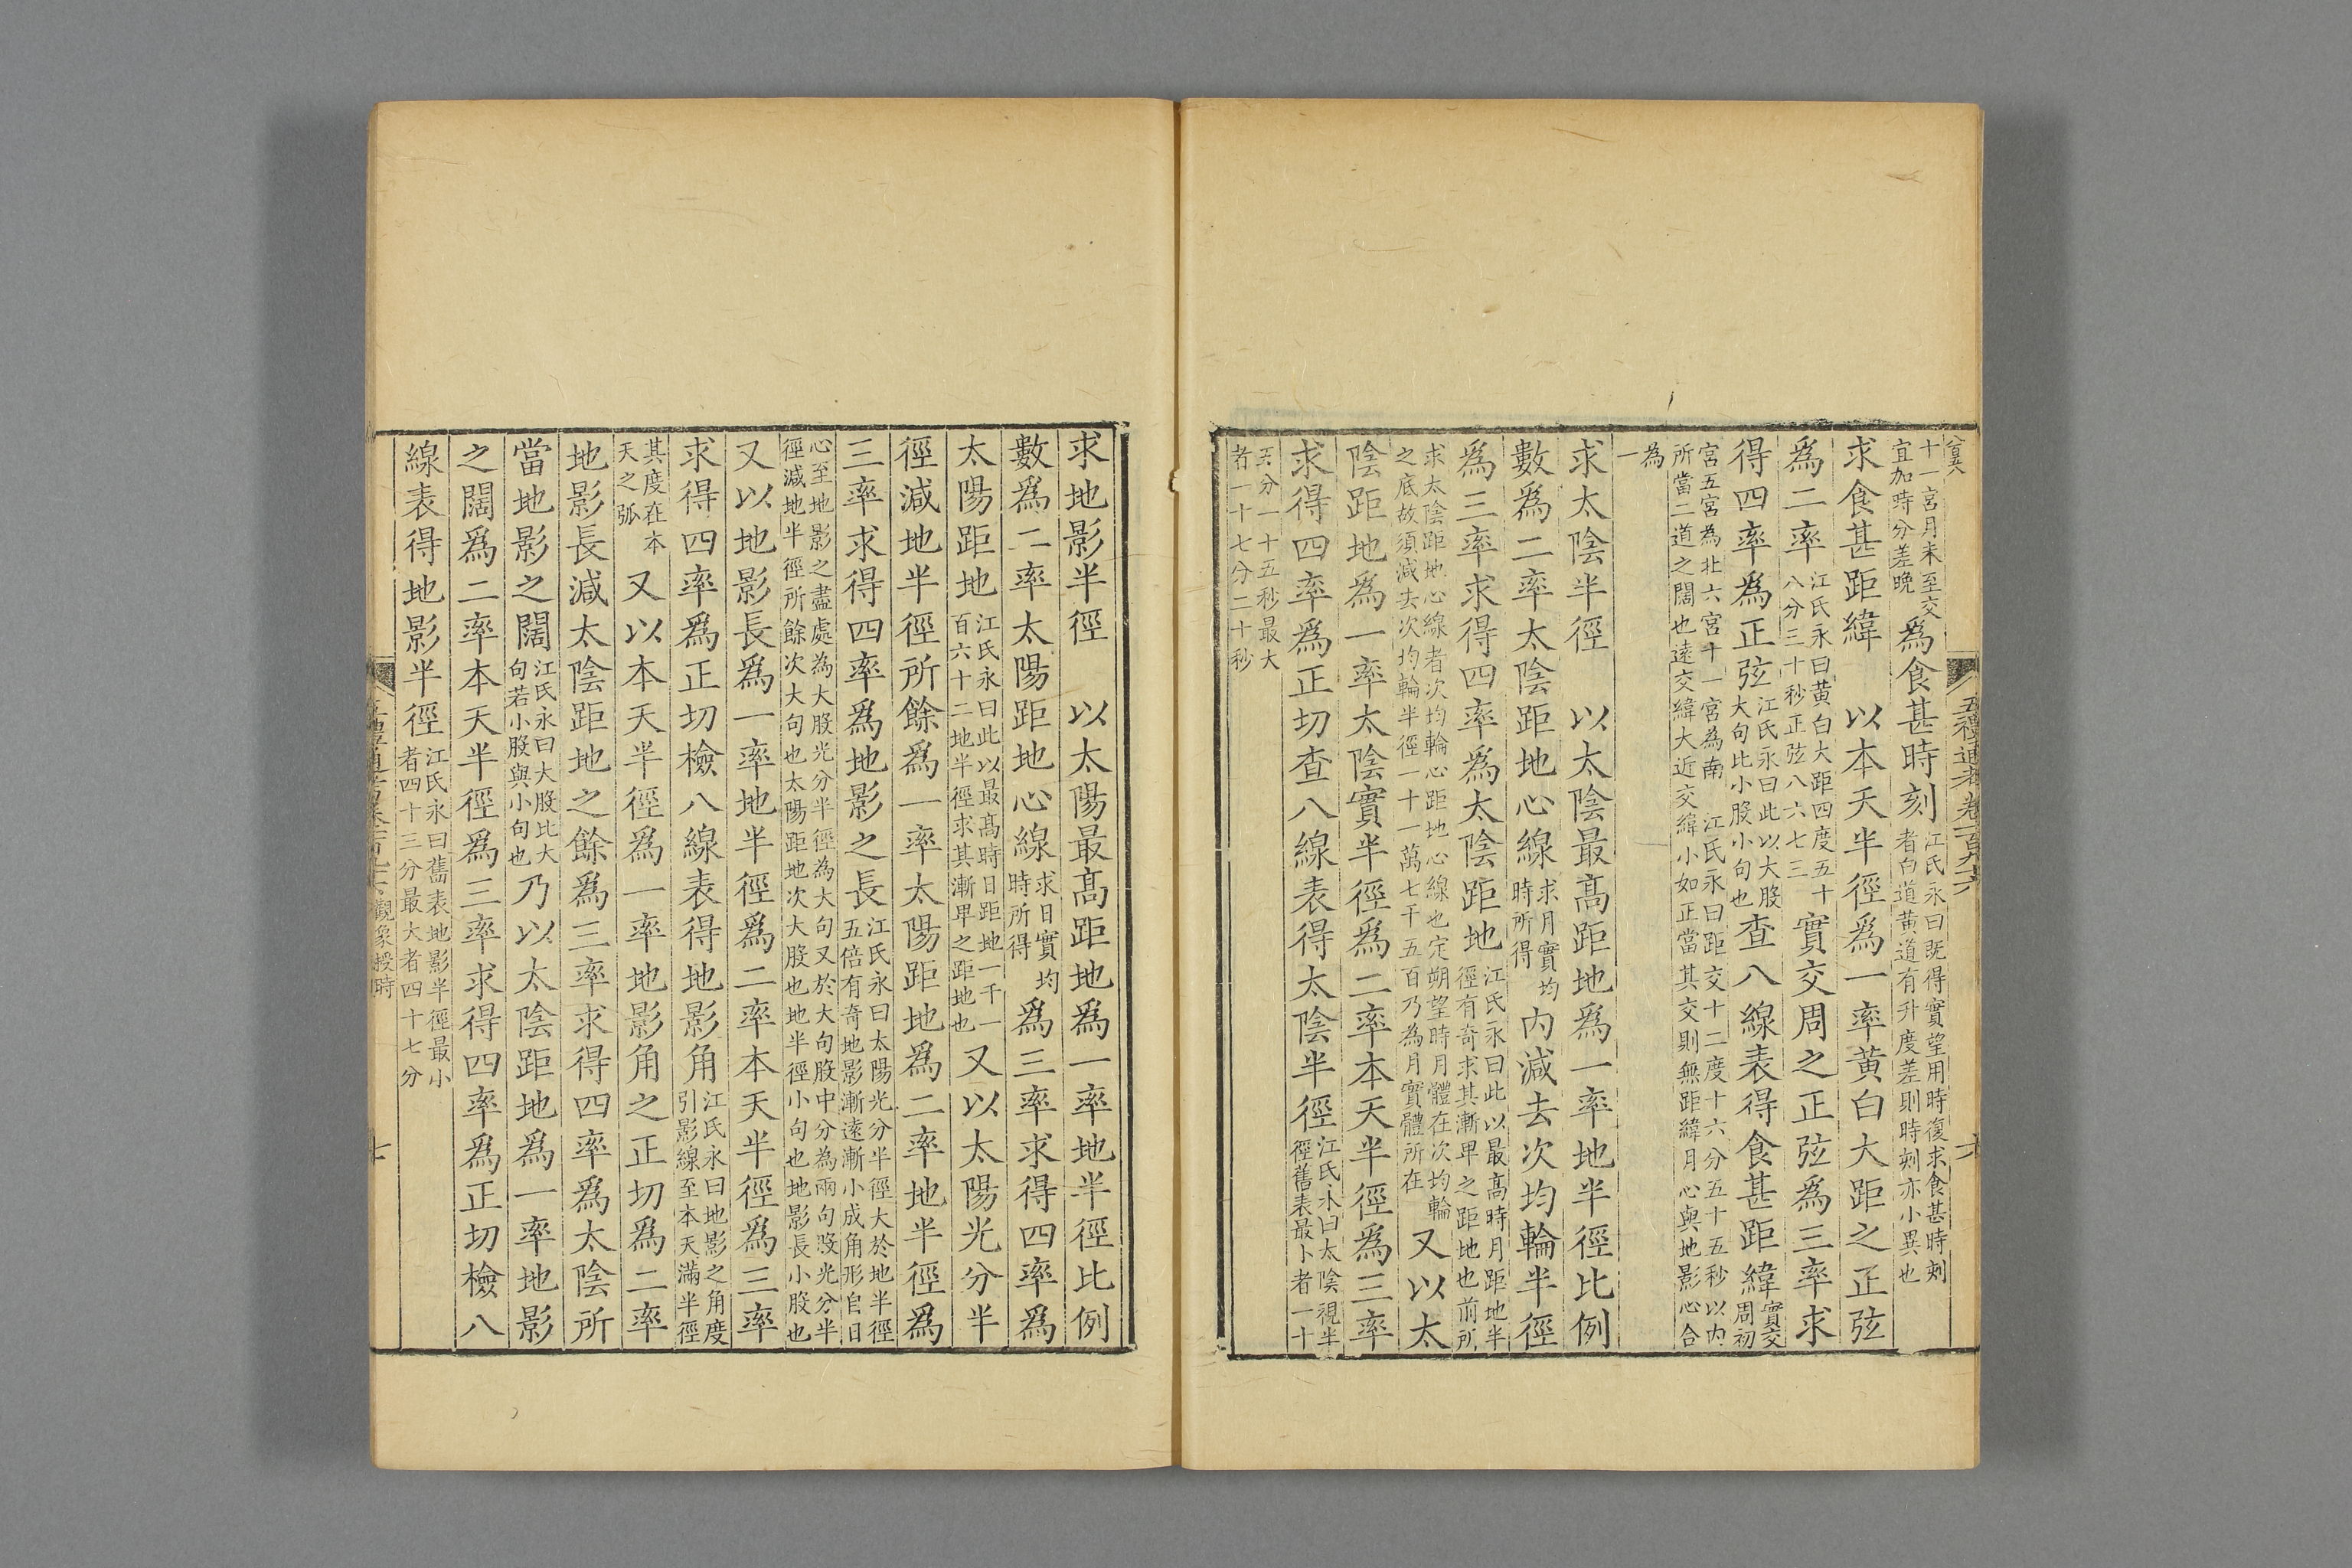 五禮通考卷一百九十六
十一宮月未至交
宜加時分差晚
為食甚時刻
江氏永曰既得實望用時復求食甚時刻
者白道黃道有升度差則時刻亦小異也
求食甚距緯　以本天半徑爲一率黃白大距之正弦
爲二率
江氏永曰黃白大距四度五十
八分三十秒正弦八六七三
實交周之正弦爲三率求
得四率爲正弦
江氏永曰此以大股
大句比小股小句也
查八線表得食甚距緯
實交
周初
宮五宮為北六宮十一宮為南　江氏永曰距交十二度十六分五十五秒以内
所當二道之闊也遠交緯大近交緯小如正當其交則無距緯月心與地影心合
為
一
求太陰半徑　以太陰最高距地爲一率地半徑比例
數爲二率太陰距地心線
求月實均
時所得
内減去次均輪半徑
爲三率求得四率爲太陰距地
江氏永曰此以最高時月距地半
徑有奇求其漸畢之距地也前所
求太陰距地心線者次均輪心距地心線也定朔望時月體在次均輪
之底故須減去次均輪半徑一十一萬七千五百乃為月實體所在
又以太
陰距地爲一率太陰實半徑爲二率本天半徑爲三率
求得四率爲正切查八線表得太陰半徑
江氏永曰太陰視半
徑舊表最小者一十
五分一十五秒最大
者一十七分二十秒
求地影半徑　以太陽最高距地爲一率地半徑比例
數爲二率太陽距地心線
求日實均
時所得
爲三率求得四率爲
太陽距地
江氏永曰此以最高時日距地一千一
百六十二地半徑求其漸畢之距地也
又以太陽光分半
徑減地半徑所餘爲一率太陽距地爲二率地半徑爲
三率求得四率爲地影之長
江氏永曰太陽光分半徑大於地半徑
五倍有奇地影漸遠漸小成角形自日
心至地影之盡處為大股光分半徑為大句又於大句股中分為兩句股光分半
徑減地半徑所餘次大句也太陽距地次大股也地半徑小句也地影長小股也
又以地影長爲一率地半徑爲二率本天半徑爲三率
求得四率爲正切檢八線表得地影角
江氏永曰地影之角度
引影線至本天滿半徑
其度在本
天之弧
又以本天半徑爲一率地影角之正切爲二率
地影長減太陰距地之餘爲三率求得四率爲太陰所
當地影之闊
江氏永曰大股比大
句若小股與小句也
乃以太陰距地爲一率地影
之闊爲二率本天半徑爲三率求得四率爲正切檢八
線表得地影半徑
江氏永曰舊表地影半徑最小
者四十三分最大者四十七分
觀象授時